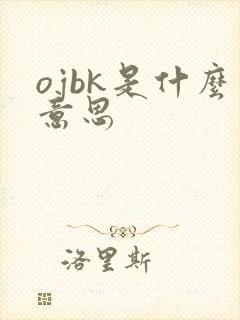 ojbk是什麼
意思
洛里斯